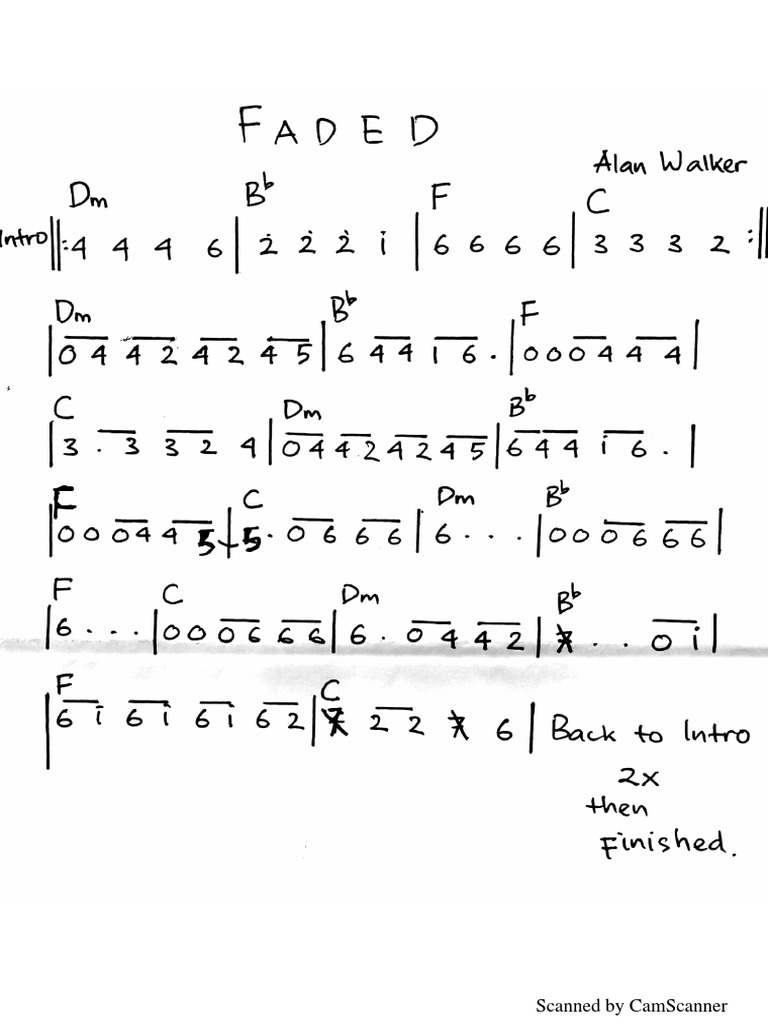 FADED
Alan Walker
Dm B♭ F C
Intro ‖: 4 4 4 6 | 2̇ 2̇ 2̇ 1̇ | 6 6 6 6 | 3 3 3 2 :‖
Dm B♭ F
| 0 4 4 2 4 2 4 5 | 6 4 4 1 6 . | 0 0 0 4 4 4 |
C Dm B♭
| 3 . 3 3 2 4 | 0 4 4 2 4 2 4 5 | 6 4 4 1̇ 6 . |
F C Dm B♭
| 0 0 0 4 4 5 | 5 . 0 6 6 6 | 6 . . . | 0 0 0 6 6 6 |
F C Dm B♭
| 6 . . . | 0 0 0 6 6 6 | 6 . 0 4 4 2 | 7̸ . . 0 1̇ |
F C
| 6 1̇ 6 1̇ 6 1̇ 6 2 | 7̸ 2 2 7̸ 6 | Back to Intro
2x
then
Finished.
Scanned by CamScanner